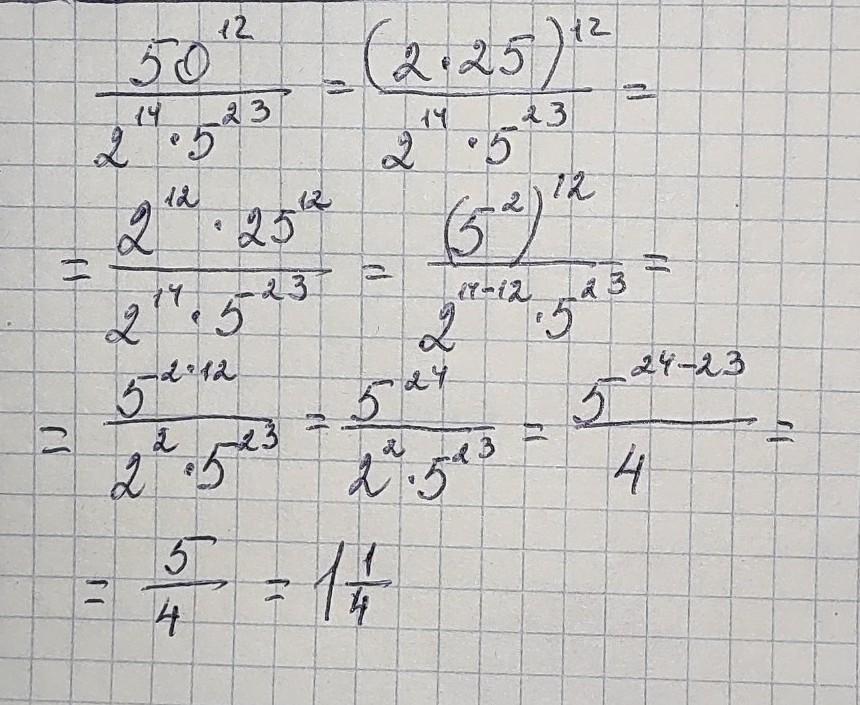 50^12 / (2^14 · 5^23) = (2·25)^12 / (2^14 · 5^23) =
= (2^12 · 25^12) / (2^14 · 5^23) = (5^2)^12 / (2^(14-12) · 5^23) =
= 5^(2·12) / (2^2 · 5^23) = 5^24 / (2^2 · 5^23) = 5^(24-23) / 4 =
= 5/4 = 1 1/4